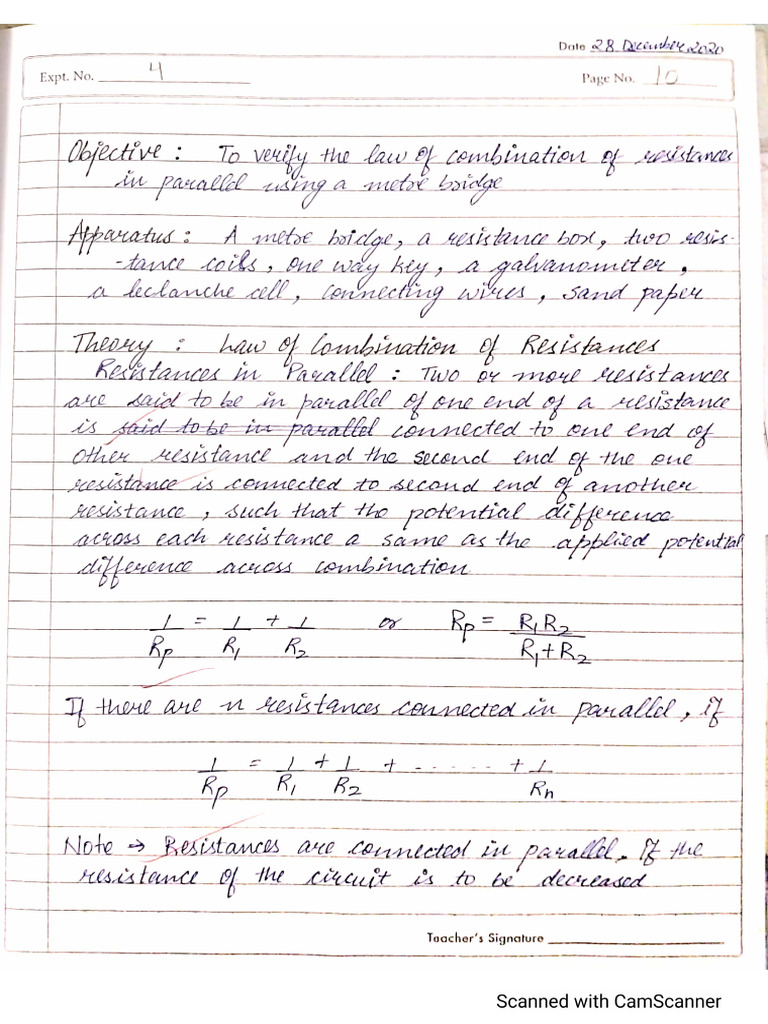 Date 28 December 2020
Expt. No. 4
Page No. 10
Objective : To verify the law of combination of resistances
in parallel using a metre bridge
Apparatus : A metre bridge, a resistance box, two resis-
-tance coils, one way key, a galvanometer,
a leclanche cell, connecting wires, sand paper
Theory : Law of Combination of Resistances
Resistances in Parallel : Two or more resistances
are said to be in parallel of one end of a resistance
is said to be in parallel connected to one end of
other resistance and the second end of the one
resistance is connected to second end of another
resistance, such that the potential difference
across each resistance a same as the applied potential
difference across combination
1/Rp = 1/R1 + 1/R2 or Rp = R1R2/R1+R2
If there are n resistances connected in parallel, if
1/Rp = 1/R1 + 1/R2 + ...... + 1/Rn
Note → Resistances are connected in parallel. If the
resistance of the circuit is to be decreased
Teacher's Signature
Scanned with CamScanner